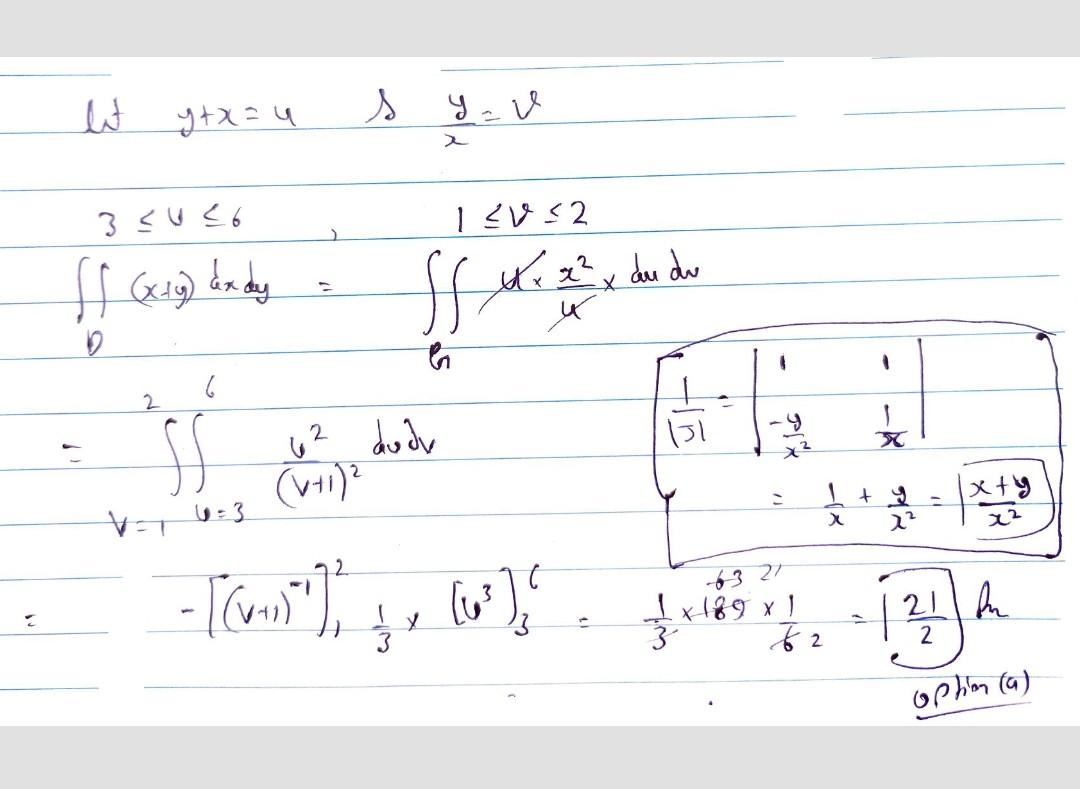 let y+x = u & y/x = v
3 ≤ u ≤ 6 , 1 ≤ v ≤ 2
∬ (x+y) dx dy = ∬ u × x²/u × du dv
D
1/|J| = | 1 1 |
| -y/x² 1/x |
= 1/x + y/x² = x+y/x²
2 6
= ∬ u²/(v+1)² du dv
v=1 u=3
= -[(v+1)⁻¹]₁² 1/3 × [u³]₃⁶ = 1/3 × 189 × 1/6 = 21/2
63 21
2
option (a)